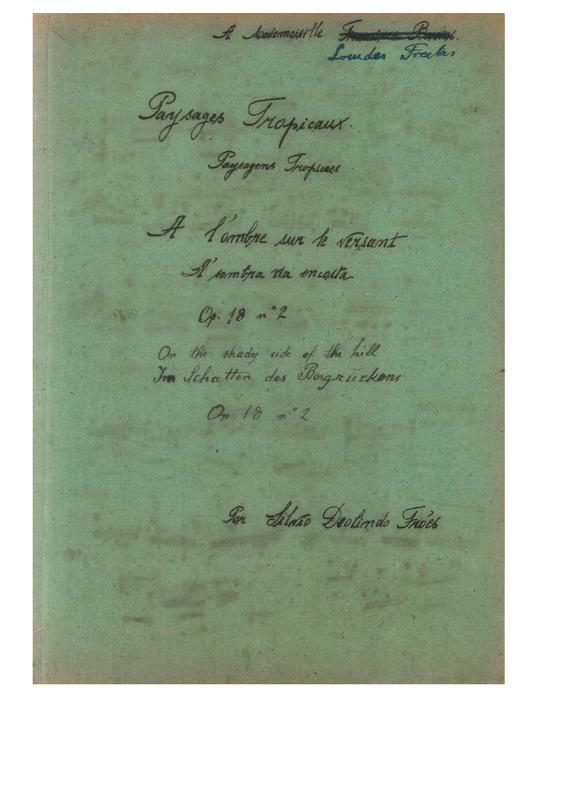 A Mademoiselle
Lourdes Freitas
Paysages Tropicaux.
Paysagens Tropicaes
A l'ombre sur le versant
A' sombra da encosta
Op. 18 nº 2
On the shady side of the hill
Im Schatten des Bergrückens
Op 18 nº 2
Por Silvio Deolindo Fróes